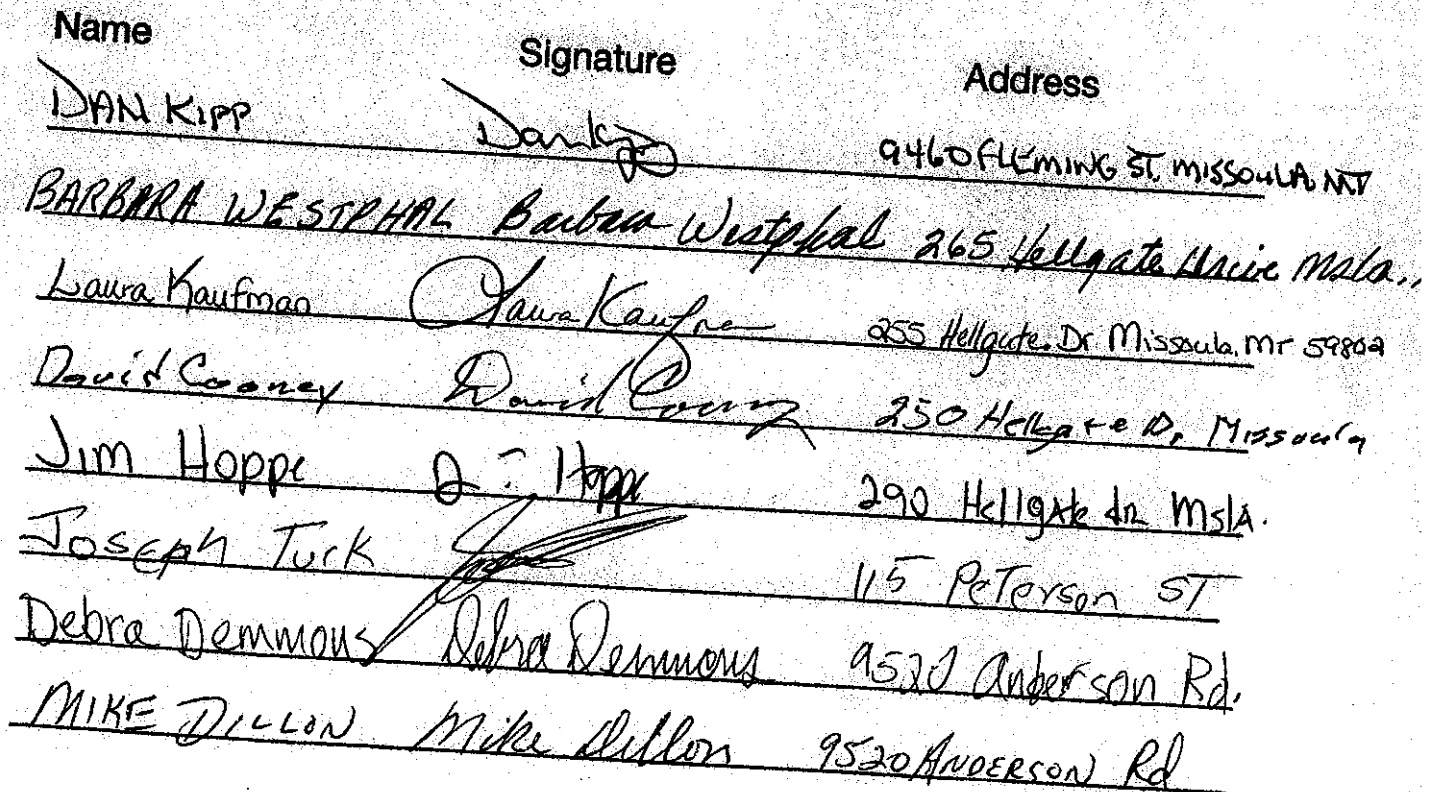 Name Signature Address
DAN KIPP Dan Kipp 9460 FLEMING ST. MISSOULA MT
BARBARA WESTPHAL Barbara Westphal 265 Hellgate Drive Msla..
Laura Kaufman Laura Kaufman 255 Hellgate Dr Missoula, MT 59802
David Cooney David Cooney 250 Hellgate Dr Missoula
Jim Hoppe J Hoppe 290 Hellgate dr MslA.
Joseph Turk 115 Peterson ST
Debra Demmons Debra Demmons 9520 Anderson Rd.
MIKE DILLON Mike Dillon 9520 ANDERSON Rd